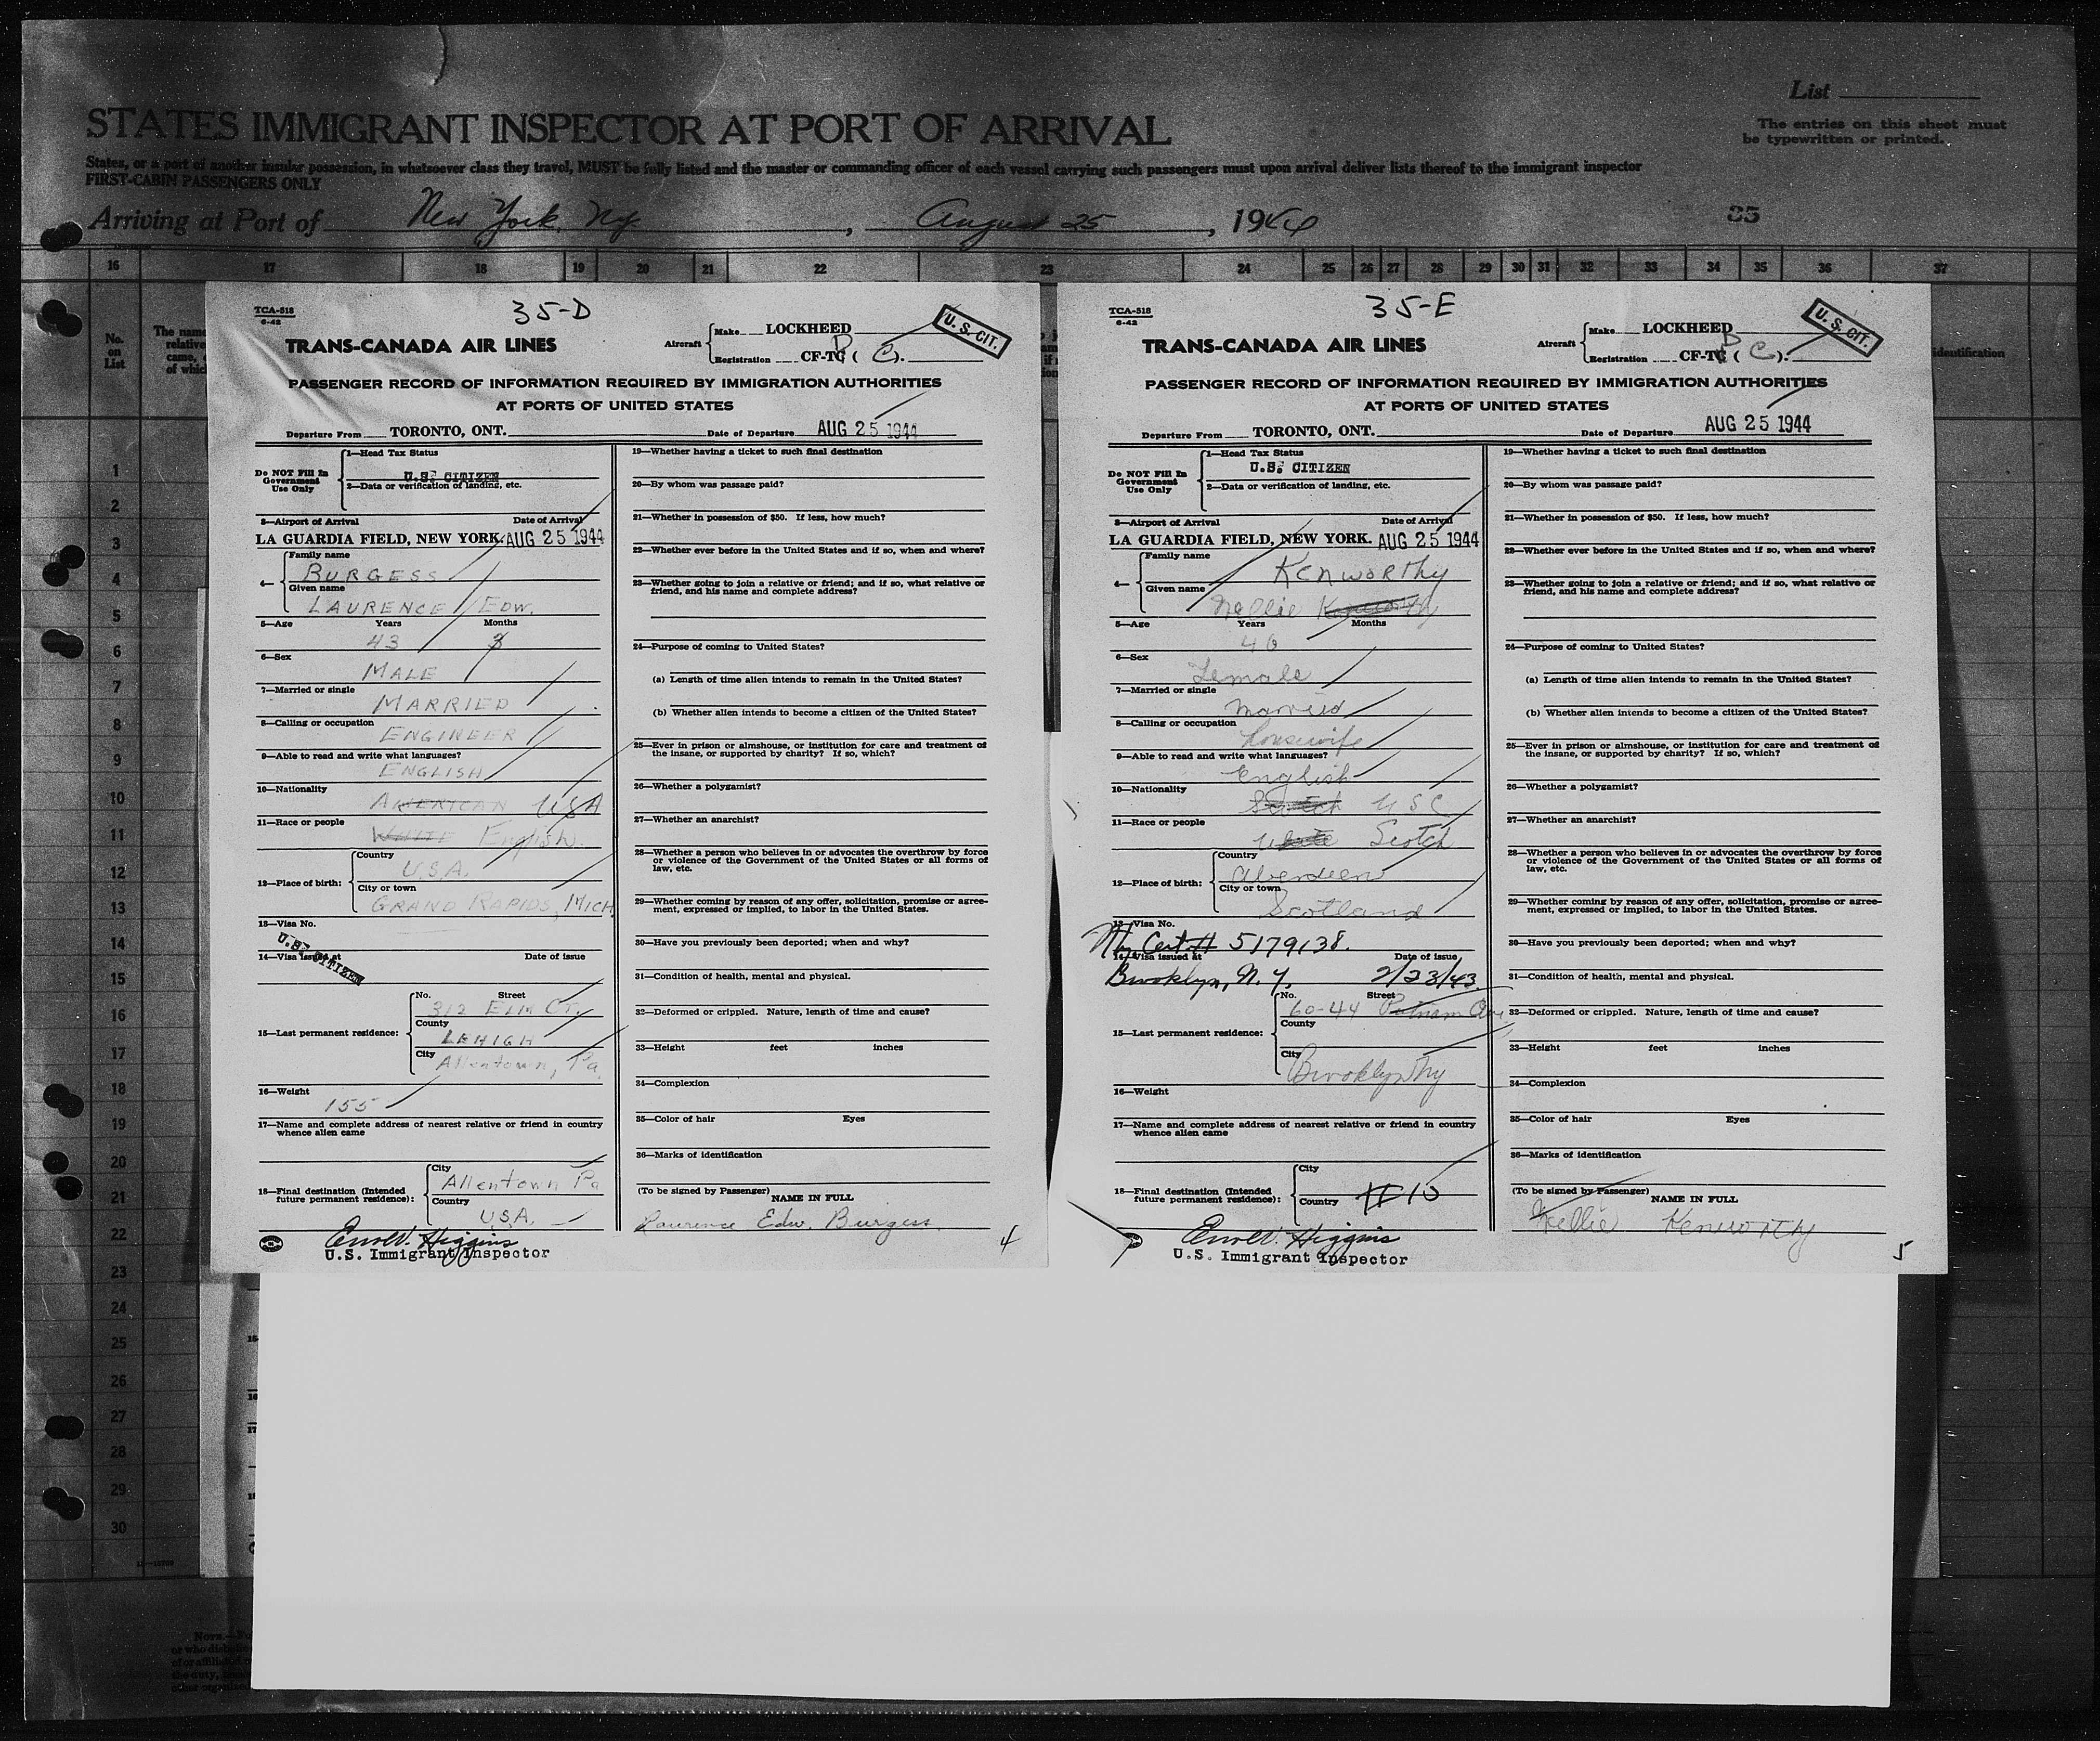 List
STATES IMMIGRANT INSPECTOR AT PORT OF ARRIVAL
The entries on this sheet must
be typewritten or printed.
States, or a port of another insular possession, in whatsoever class they travel, MUST be fully listed and the master or commanding officer of each vessel carrying such passengers must upon arrival deliver lists thereof to the immigrant inspector
FIRST-CABIN PASSENGERS ONLY
Arriving at Port of New York, Ny. , August 25 , 1944
35
16 17 18 19 20 21 22 23 24 25 26 27 28 29 30 31 32 33 34 35 36 37
No.
on
List
The name
relative
came,
of which
identification
1
2
3
4
5
6
7
8
9
10
11
12
13
14
15
16
17
18
19
20
21
22
23
24
25
26
27
28
29
30
TCA-518
6-42
35-D
U.S. CIT.
TRANS-CANADA AIR LINES
Aircraft
Make LOCKHEED
Registration CF-TC ( C ).
PASSENGER RECORD OF INFORMATION REQUIRED BY IMMIGRATION AUTHORITIES
AT PORTS OF UNITED STATES
Departure From TORONTO, ONT. Date of Departure AUG 25 1944
Do NOT Fill In
Government
Use Only
1—Head Tax Status
U.S. CITIZEN
2—Data or verification of landing, etc.
3—Airport of Arrival Date of Arrival
LA GUARDIA FIELD, NEW YORK. AUG 25 1944
4—
Family name
BURGESS
Given name
LAURENCE EDW.
5—Age Years Months
43 3
6—Sex
MALE
7—Married or single
MARRIED
8—Calling or occupation
ENGINEER
9—Able to read and write what languages?
ENGLISH
10—Nationality
AMERICAN USA
11—Race or people
WHITE English
12—Place of birth:
Country
U.S.A.
City or town
GRAND RAPIDS, MICH
13—Visa No.
U.S. CITIZEN
14—Visa issued at Date of issue
15—Last permanent residence:
No. Street
312 ELM CT.
County
LEHIGH
City
Allentown, Pa
16—Weight
155
17—Name and complete address of nearest relative or friend in country
whence alien came
18—Final destination (Intended
future permanent residence):
City
Allentown Pa
Country
U.S.A.
Errol V. Higgins
U.S. Immigrant Inspector
19—Whether having a ticket to such final destination
20—By whom was passage paid?
21—Whether in possession of $50. If less, how much?
22—Whether ever before in the United States and if so, when and where?
23—Whether going to join a relative or friend; and if so, what relative or
friend, and his name and complete address?
24—Purpose of coming to United States?
(a) Length of time alien intends to remain in the United States?
(b) Whether alien intends to become a citizen of the United States?
25—Ever in prison or almshouse, or institution for care and treatment of
the insane, or supported by charity? If so, which?
26—Whether a polygamist?
27—Whether an anarchist?
28—Whether a person who believes in or advocates the overthrow by force
or violence of the Government of the United States or all forms of
law, etc.
29—Whether coming by reason of any offer, solicitation, promise or agree-
ment, expressed or implied, to labor in the United States.
30—Have you previously been deported; when and why?
31—Condition of health, mental and physical.
32—Deformed or crippled. Nature, length of time and cause?
33—Height feet inches
34—Complexion
35—Color of hair Eyes
36—Marks of identification
(To be signed by Passenger)
NAME IN FULL
Laurence Edw. Burgess
4
TCA-518
6-42
35-E
U.S. CIT.
TRANS-CANADA AIR LINES
Aircraft
Make LOCKHEED
Registration CF-TC ( C ).
PASSENGER RECORD OF INFORMATION REQUIRED BY IMMIGRATION AUTHORITIES
AT PORTS OF UNITED STATES
Departure From TORONTO, ONT. Date of Departure AUG 25 1944
Do NOT Fill In
Government
Use Only
1—Head Tax Status
U.S. CITIZEN
2—Data or verification of landing, etc.
3—Airport of Arrival Date of Arrival
LA GUARDIA FIELD, NEW YORK. AUG 25 1944
4—
Family name
Kenworthy
Given name
Nellie Kenworth
5—Age Years Months
46
6—Sex
Female
7—Married or single
Married
8—Calling or occupation
housewife
9—Able to read and write what languages?
English
10—Nationality
Scotch USC
11—Race or people
White Scotch
12—Place of birth:
Country
Aberdeen
City or town
Scotland
13—Visa No.
Ny Cert # 5179138.
14—Visa issued at Date of issue
Brooklyn, N.Y. 2/23/43
15—Last permanent residence:
No. Street
60-44 Putnam Ave
County
City
Brooklyn Ny
16—Weight
17—Name and complete address of nearest relative or friend in country
whence alien came
18—Final destination (Intended
future permanent residence):
City
Country
# 15
Errol V. Higgins
U.S. Immigrant Inspector
19—Whether having a ticket to such final destination
20—By whom was passage paid?
21—Whether in possession of $50. If less, how much?
22—Whether ever before in the United States and if so, when and where?
23—Whether going to join a relative or friend; and if so, what relative or
friend, and his name and complete address?
24—Purpose of coming to United States?
(a) Length of time alien intends to remain in the United States?
(b) Whether alien intends to become a citizen of the United States?
25—Ever in prison or almshouse, or institution for care and treatment of
the insane, or supported by charity? If so, which?
26—Whether a polygamist?
27—Whether an anarchist?
28—Whether a person who believes in or advocates the overthrow by force
or violence of the Government of the United States or all forms of
law, etc.
29—Whether coming by reason of any offer, solicitation, promise or agree-
ment, expressed or implied, to labor in the United States.
30—Have you previously been deported; when and why?
31—Condition of health, mental and physical.
32—Deformed or crippled. Nature, length of time and cause?
33—Height feet inches
34—Complexion
35—Color of hair Eyes
36—Marks of identification
(To be signed by Passenger)
NAME IN FULL
Nellie Kenworthy
5